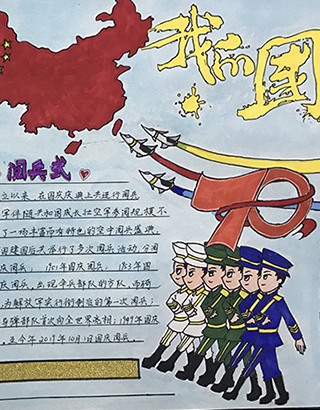 我的国
阅兵式
立以来，在国庆庆典上共进行阅兵
军伴随共和国成长壮
了一场丰富而有特色的空中阅兵盛典，
国建国后共举行了多次阅兵活动，分国
庆阅兵，1951年国庆阅兵，1953年国
庆阅兵，出现伞兵部队的方队，而骑
为解放军实行衔制后的第一次阅兵；
导弹部队首次向全世界亮相；1949年国
，至今年2019年10月1日国庆阅兵。
70